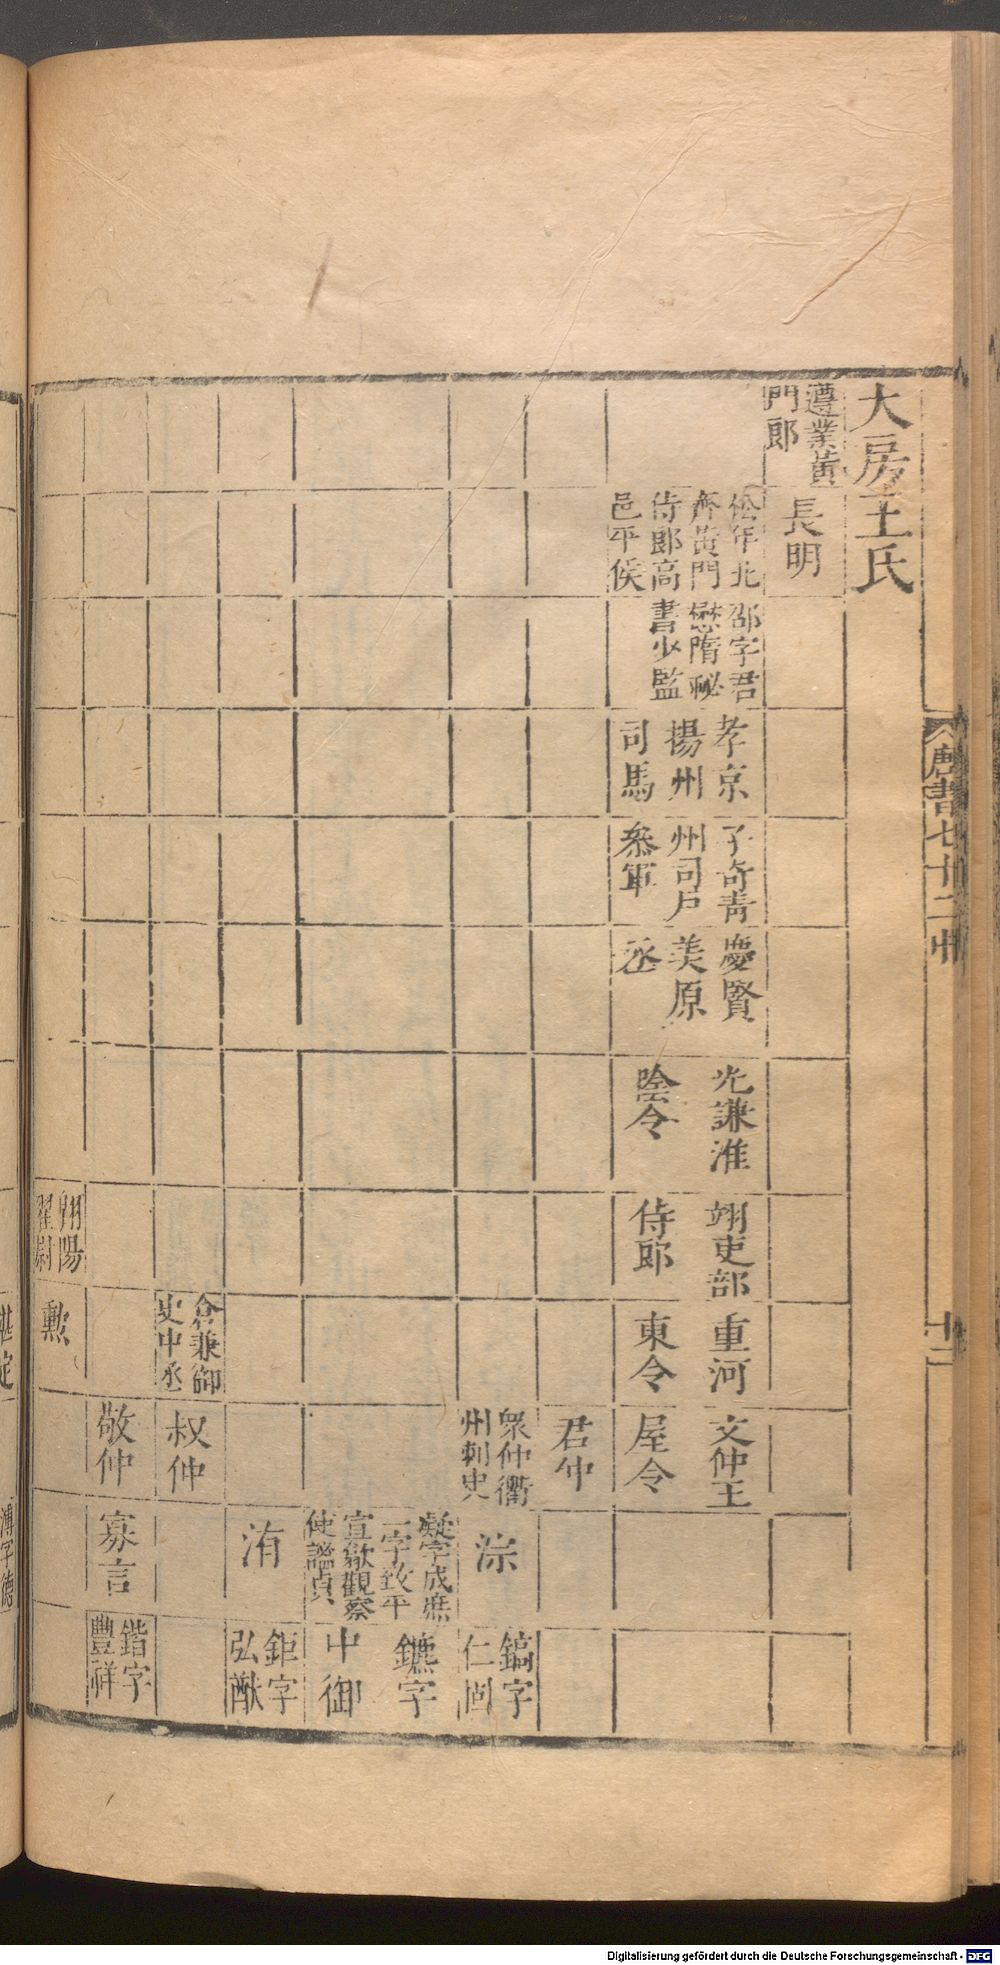 大房王氏
遵業黃
門郎
長明
松年北
齊黃門
侍郎高
邑平侯
邵字君
懋隋秘
書少監
孝京
揚州
司馬
子奇青
州司戶
叅軍
慶賢
美原
丞
光謙淮
陰令
翊吏部
侍郎
重河
東令
文仲王
屋令
君仲
衆仲衢
州刺史
淙
鎬字
仁固
凝字成庶
一字致平
宣歙觀察
使謚貞
鑣字
中御
洧
鉅字
弘猷
倉兼御
史中丞
叔仲
敬仲
寡言
鍇字
豐祥
翃陽
翟尉
勳
唐書七十二中
十二
溥字德
Digitalisierung gefördert durch die Deutsche Forschungsgemeinschaft - DFG